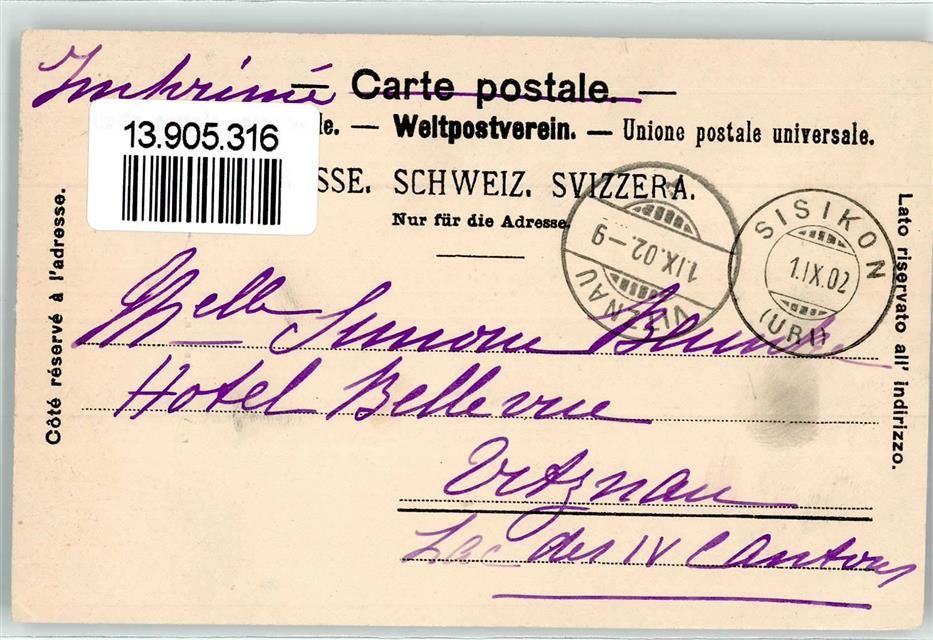 Imprimé
— Carte postale. —
le. — Weltpostverein. — Unione postale universale.
13.905.316
SSE. SCHWEIZ. SVIZZERA.
Nur für die Adresse.
Côté réservé à l'adresse.
Lato riservato all' indirizzo.
VITZNAU
1.IX.02.–9
SISIKON
1.IX.02
(URI)
Melle Simone
Hotel Bellevue
Vitznau
Lac des IV Cantons